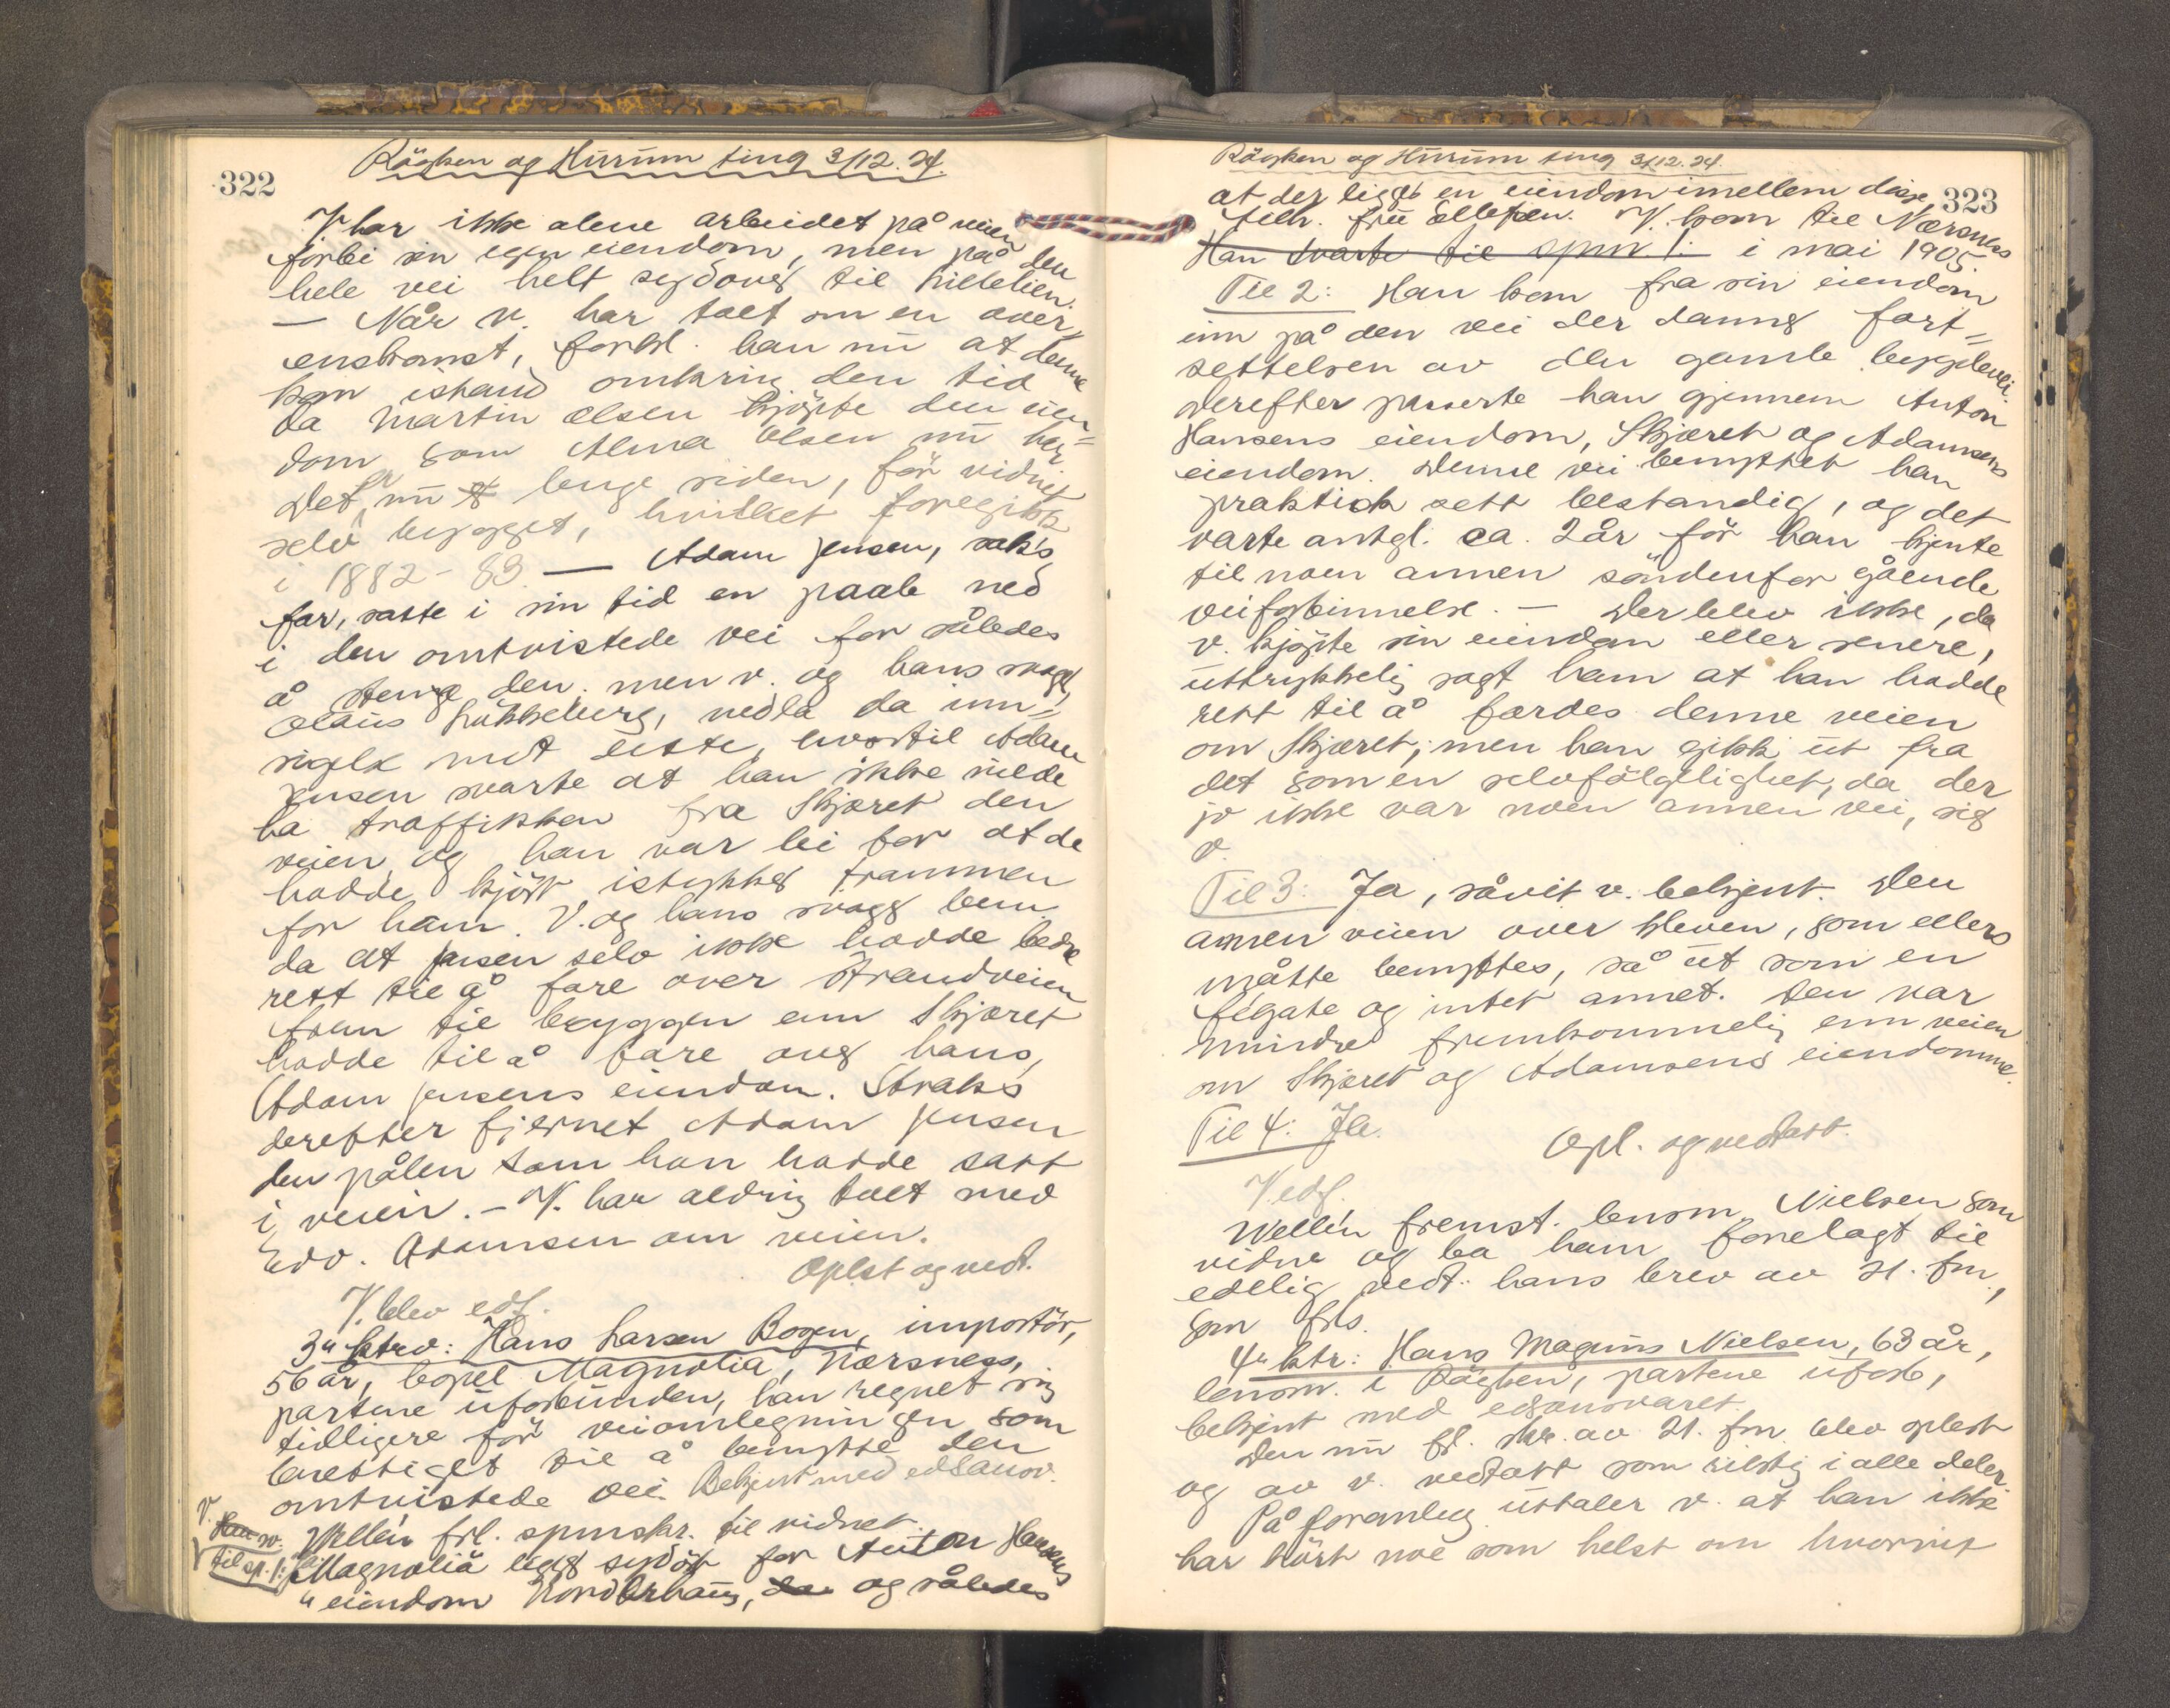 322
Röyken og Hurum ting 3/12. 24.
V. har ikke alene arbeidet på veien
forbi sin egen eiendom, men på den
hele vei helt sydover til Lillelien.
— Når v. har talt om en over-
enskomst, forkl. han nu at denne
kom istand omkring den tid
da Martin Olsen kjöpte den eien=
dom som Alma Olsen nu har
Det er nu lenge siden, för vidnet
selv bygget, hvilket foregikk
i 1882-83. — Adam Jensen, saks.
far, satte i sin tid en paale ned
i den omtvistede vei for således
å stenge den. men v. og hans svoger,
Olaus Lükkeberg, nedla da inn=
sigelse mot dette, hvortil Adam
Jensen svarte at han ikke vilde
ha traffikken fra Skjæret den
veien og han var lei for at de
hadde kjört istykker trammen
for ham. V. og hans svoger bem.
da at Jensen selv ikke hadde bedre
rett til å fare over Strandveien
frem til bryggen enn Skjæret
hadde til å fare over hans,
Adam Jensens eiendom. Straks
derefter fjernet Adam Jensen
den pålen som han hadde satt
i veien. — V. har aldrig talt med
Edv. Adamsen om veien.
Oplest og vedt.
V. blev edf.
3. ktrv: Hans Larsen Bogen, importör,
56 år, bopel Magnolia, Nærsness,
partene uforbunden, han regnet sig
tidligere för veiomlegningen som
berettiget til å benytte den
omtvistede vei. Bekjent med edsansv.
Wellén frl. spmskr. til vidnet.
V. Han sv.
til sp. 1: Magnolia ligger syd för for Anton Hansens
eiendom Nordbrhaug, da og således
Röyken og Hurum ting 3/12. 24.
323
at der ligger en eiendom imellem disse,
tilh. fru Ellefsen. V. kom til Nærsness
Han svarte til spm. 1: i mai 1905.
Til 2: Han kom fra sin eiendom
inn på den vei der danner fort=
settelsen av den gamle bygdevei.
Derefter passerte han gjennem Anton
Hansens eiendom, Skjæret og Adamsens
eiendom. Denne vei benyttet han
praktisk sett bestandig, og det
varte antgl. ca. 2 år för han kjente
til noen annen söndenfor gående
veiforbinnelse. — Der blev ikke, da
v. kjöpte sin eiendom eller senere,
uttrykkelig sagt ham at han hadde
rett til å færdes denne veien
om Skjæret; men han gikk ut fra
det som en selvfölgelighet, da der
jo ikke var noen annen vei, sig
v.
Til 3: Ja, såvit v. bekjent. Den
annen veien over kleven, som ellers
måtte benyttes, så ut som en
fegate og intet annet. Den var
mindre fremkommelig enn veien
om Skjæret og Adamsens eiendomme.
Til 4: Ja.
Opl. og vedtatt.
V. edf.
Wellén fremst. lensm. Nielsen som
vidne og ba ham forelagt til
edelig vedt. hans brev av 21. fm.,
som frls.
4. ktr: Hans Magnus Nielsen, 63 år,
lensm. i Röyken, partene uforb,
bekjent med edsansvaret.
Den nu fl. skr. av 21. fm. blev oplest
og av v. vedtatt som riktig i alle deler.
På foranledn uttaler v. at han ikke
har hört noe som helst om hvorvit